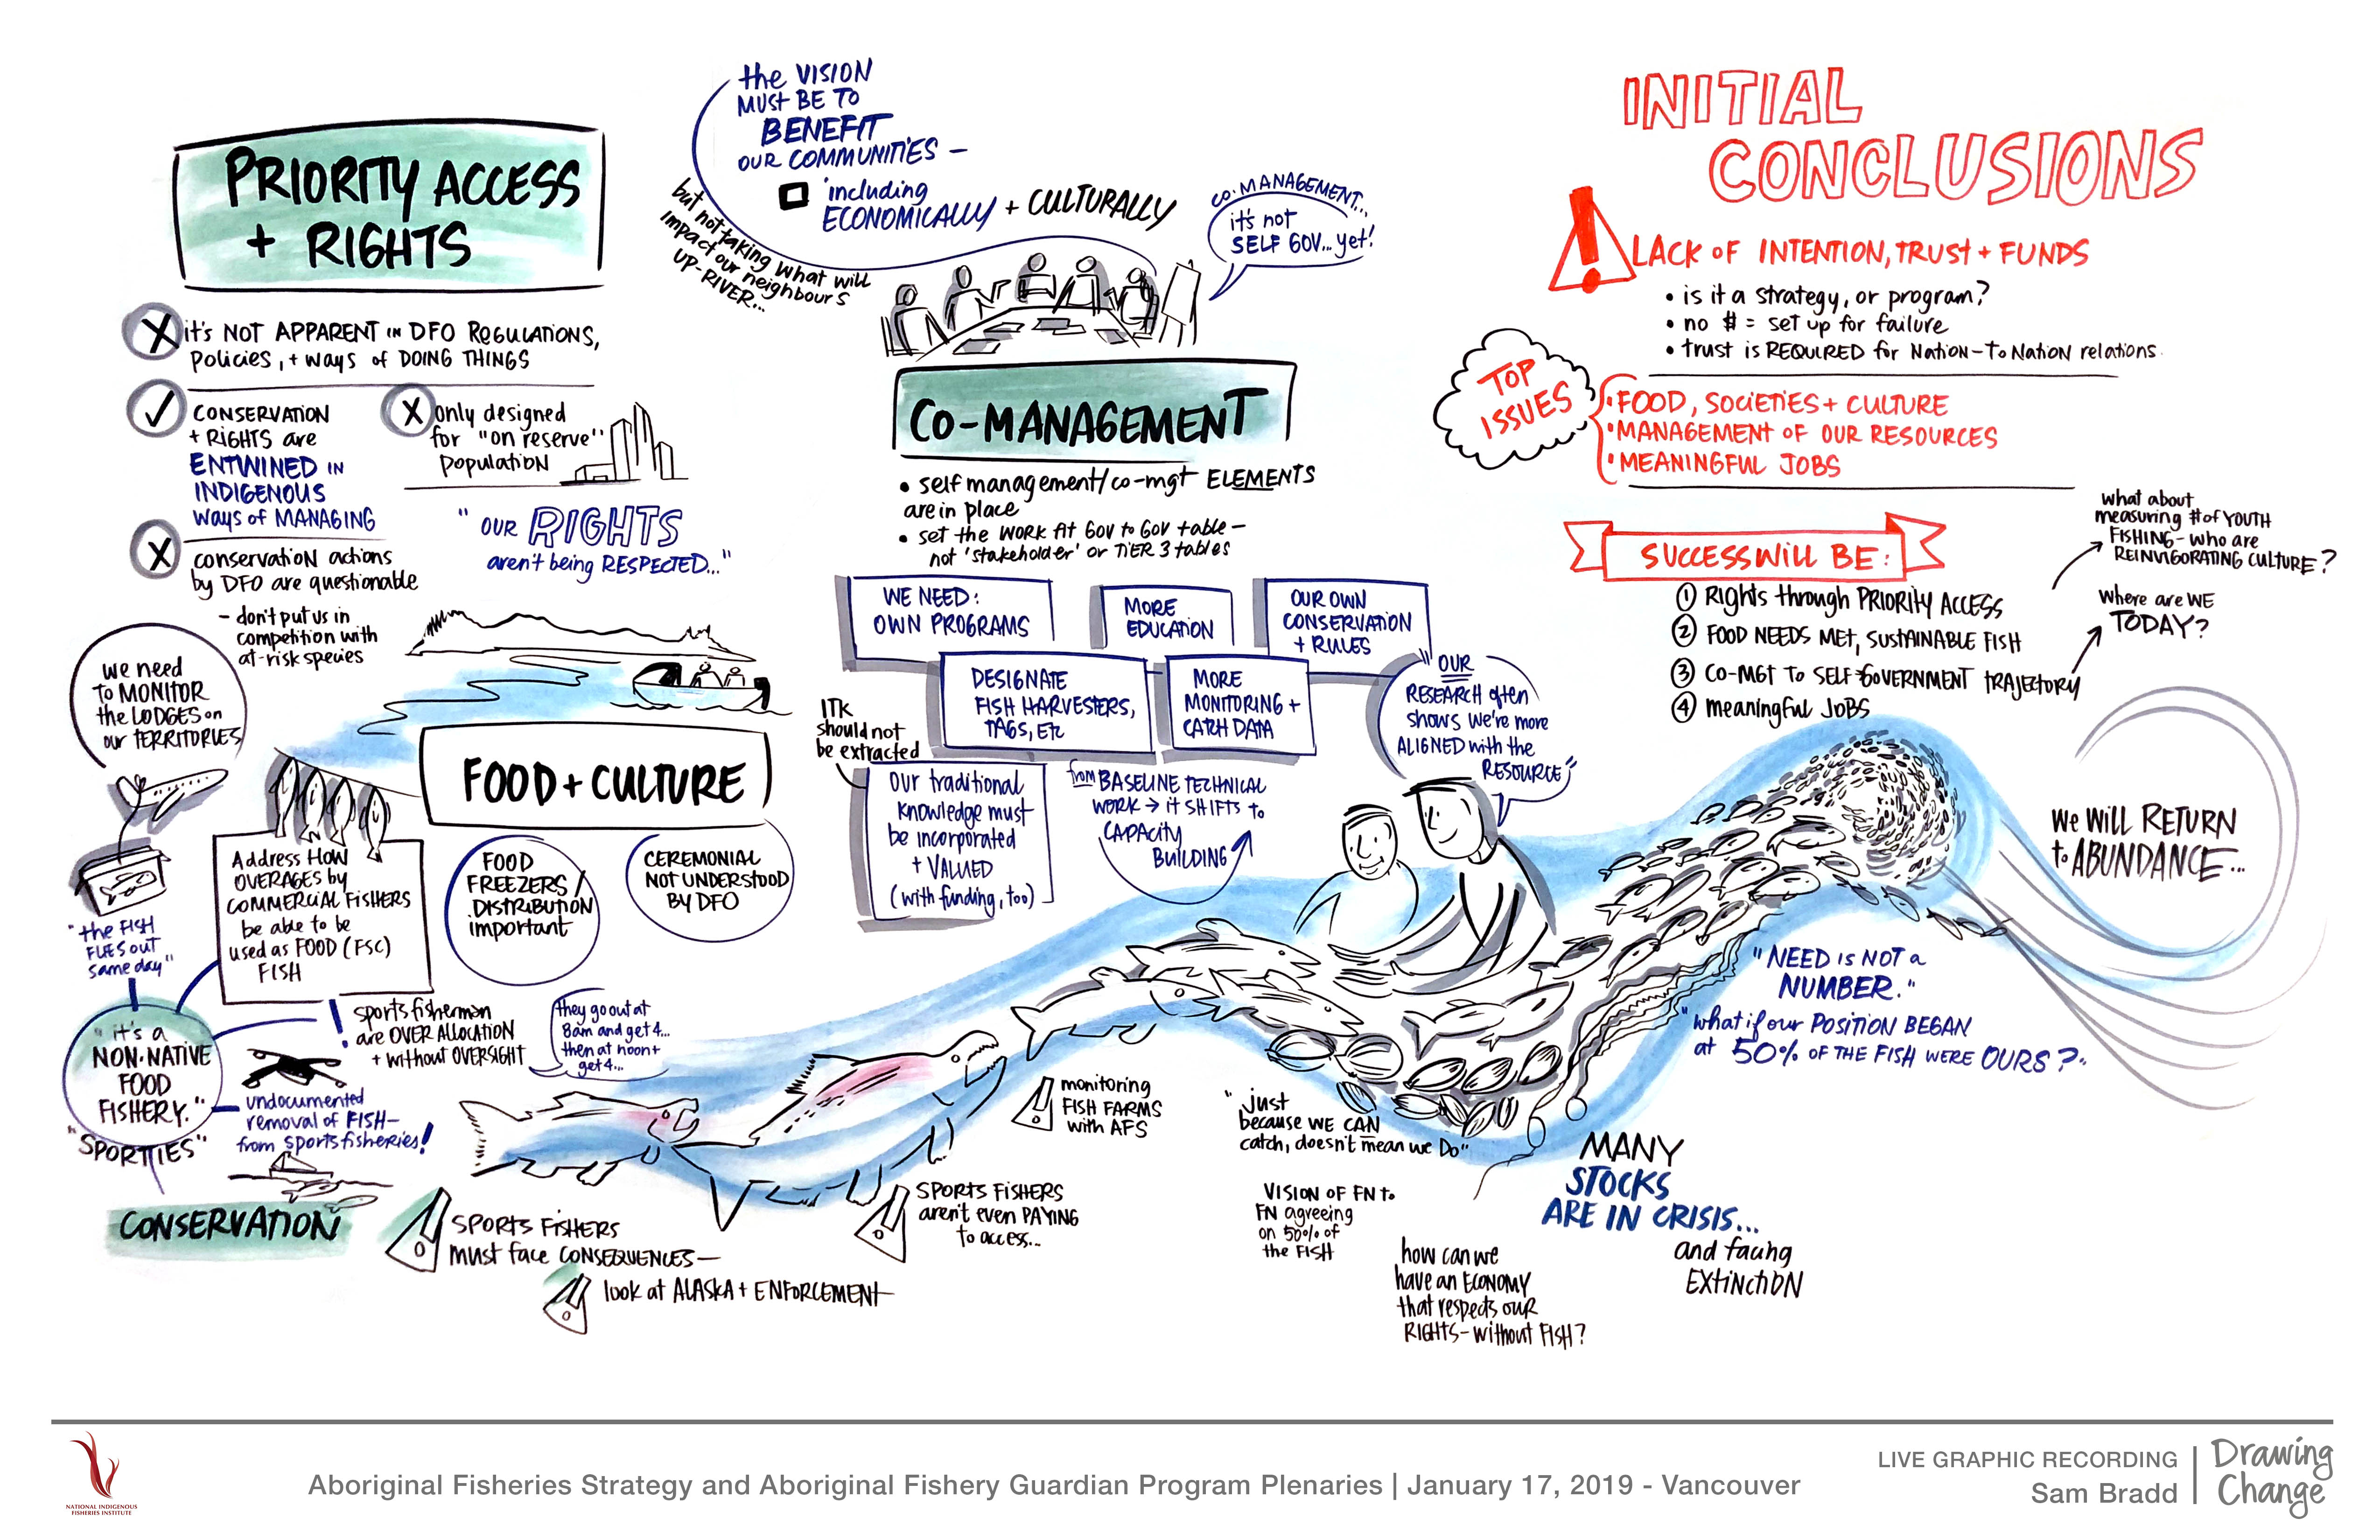 PRIORITY ACCESS
+ RIGHTS
it's NOT APPARENT IN DFO REGULATIONS,
policies, + ways of DOING THINGS
CONSERVATION
+ RIGHTS are
ENTWINED IN
INDIGENOUS
ways of MANAGING
only designed
for "on reserve"
population
conservation actions
by DFO are questionable
- don't put us in
competition with
at-risk species
"OUR RIGHTS
aren't being RESPECTED..."
we need
to MONITOR
the LODGES on
our TERRITORIES
FOOD + CULTURE
Address HOW
OVERAGES by
COMMERCIAL FISHERS
be able to be
used as FOOD (FSC)
FISH
FOOD
FREEZERS/
DISTRIBUTION
important
CEREMONIAL
NOT UNDERSTOOD
BY DFO
"the FISH
FLIES out
same day"
"it's a
NON-NATIVE
FOOD
FISHERY."
"SPORTIES"
! sports fisherman
are OVER ALLOCATION
+ without OVERSIGHT
they go out at
8am and get 4...
then at noon +
get 4...
undocumented
removal of FISH-
from sports fisheries!
CONSERVATION
SPORTS FISHERS
must face CONSEQUENCES-
look at ALASKA + ENFORCEMENT
SPORTS FISHERS
aren't even PAYING
to access...
monitoring
FISH FARMS
with AFS
the VISION
MUST BE TO
BENEFIT
OUR COMMUNITIES -
including
ECONOMICALLY + CULTURALLY
but not taking what will
impact our neighbours
UP-RIVER...
CO-MANAGEMENT...
it's not
SELF GOV... yet!
CO-MANAGEMENT
• self management/co-mgt ELEMENTS
are in place
• set the WORK At GOV to GOV table-
not 'stakeholder' or TIER 3 tables
WE NEED:
OWN PROGRAMS
MORE
EDUCATION
OUR OWN
CONSERVATION
+ RULES
DESIGNATE
FISH HARVESTERS,
TAGS, Etc
MORE
MONITORING +
CATCH DATA
"OUR
RESEARCH often
shows we're more
ALIGNED with the
RESOURCE"
ITK
should not
be extracted
our traditional
knowledge must
be incorporated
+ VALUED
(with funding, too)
from BASELINE TECHNICAL
WORK → it SHIFTS to
CAPACITY
BUILDING
"just
because WE CAN
catch, doesn't mean we Do"
VISION OF FN to
FN agreeing
on 50% of
the FISH
how can we
have an ECONOMY
that respects our
RIGHTS-without FISH?
MANY
STOCKS
ARE IN CRISIS...
and facing
EXTINCTION
INITIAL
CONCLUSIONS
LACK OF INTENTION, TRUST + FUNDS
• is it a strategy, or program?
• no $ = set up for failure
• trust is REQUIRED for NATION-TO NATION relations.
TOP
ISSUES
• FOOD, SOCIETIES + CULTURE
• MANAGEMENT OF OUR RESOURCES
• MEANINGFUL JOBS
SUCCESS WILL BE:
① Rights through PRIORITY ACCESS
② FOOD NEEDS MET, SUSTAINABLE FISH
③ CO-MGT TO SELF-GOVERNMENT TRAJECTORY
④ meaningful JOBS
what about
measuring # of YOUTH
FISHING - who are
REINVIGORATING CULTURE?
where are WE
TODAY?
WE WILL RETURN
to ABUNDANCE...
"NEED is NOT a
NUMBER."
"what if our POSITION BEGAN
at 50% OF THE FISH WERE OURS?"
NATIONAL INDIGENOUS
FISHERIES INSTITUTE
Aboriginal Fisheries Strategy and Aboriginal Fishery Guardian Program Plenaries | January 17, 2019 - Vancouver
LIVE GRAPHIC RECORDING
Sam Bradd
Drawing
Change